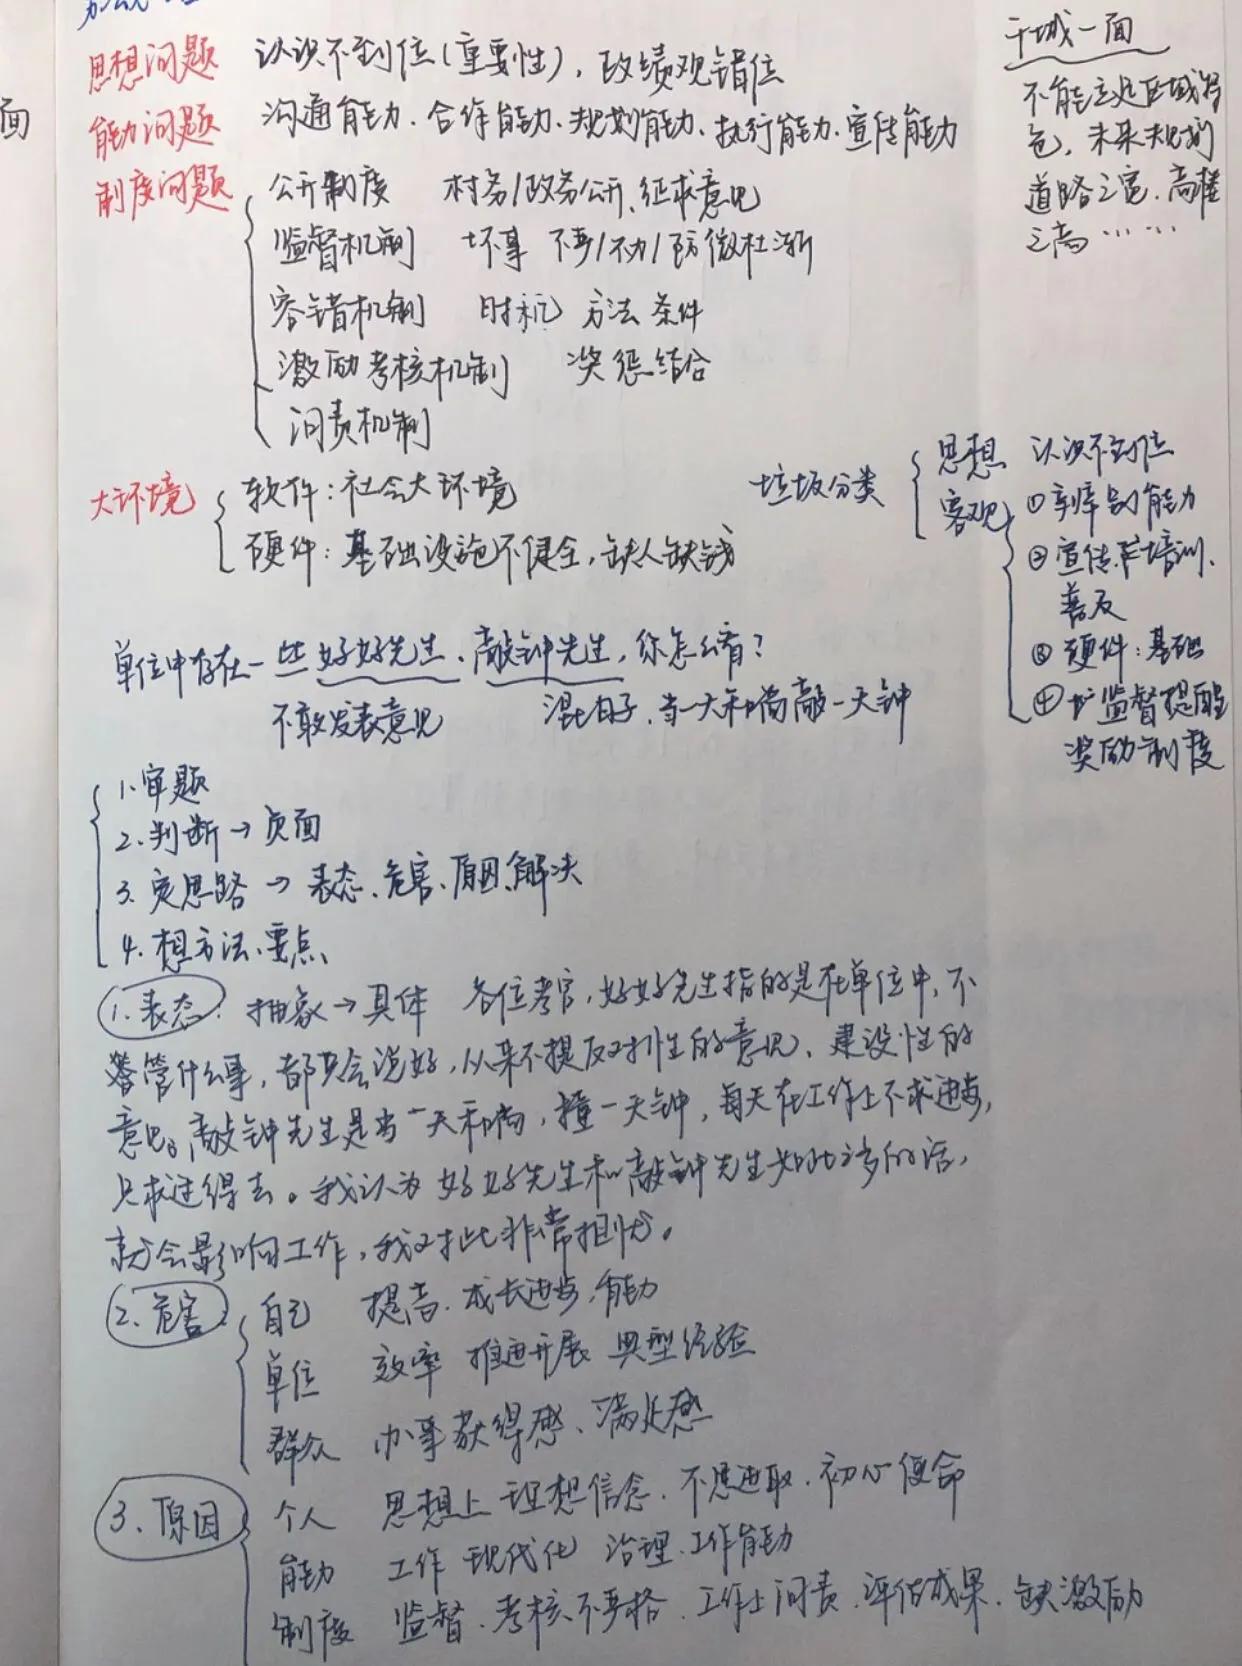 面
思想问题 认识不到位(重要性)，政绩观错位
能力问题 沟通能力、合作能力、规划能力、执行能力、宣传能力
制度问题 公开制度 村务/政务公开、征求意见
监督机制 坏事 不要/不力/防微杜渐
容错机制 时机 方法 条件
激励考核机制 奖惩结合
问责机制
大环境 软件：社会大环境
硬件：基础设施不健全，缺人缺钱
千城一面
不能立足区域特
色，未来规划
道路之宽、高楼
之高……
垃圾分类 思想 认识不到位
客观 ①辨别能力
②宣传、培训、
普及
③硬件：基础
④监督提醒
奖励制度
单位中存在一些好好先生、敲钟先生，你怎么看？
不敢发表意见 混日子、当一天和尚敲一天钟
1.审题
2.判断→负面
3.定思路→表态、危害、原因、解决
4.想方法、要点
1.表态：抽象→具体 各位考官，好好先生指的是在单位中，不
管什么事，都只会说好，从来不提反对性的意见、建设性的
意见。敲钟先生是当一天和尚，撞一天钟，每天在工作上不求进步，
只求过得去。我认为好好先生和敲钟先生如此之多的话，
就会影响工作，我对此非常担忧。
2.危害 自己 提高、成长进步、能力
单位 效率 推进开展 典型经验
群众 办事获得感、满足感
3.原因 个人 思想上 理想信念、不思进取、初心使命
能力 工作 现代化 治理、工作能力
制度 监督、考核不严格、工作上问责、评估成果、缺激励